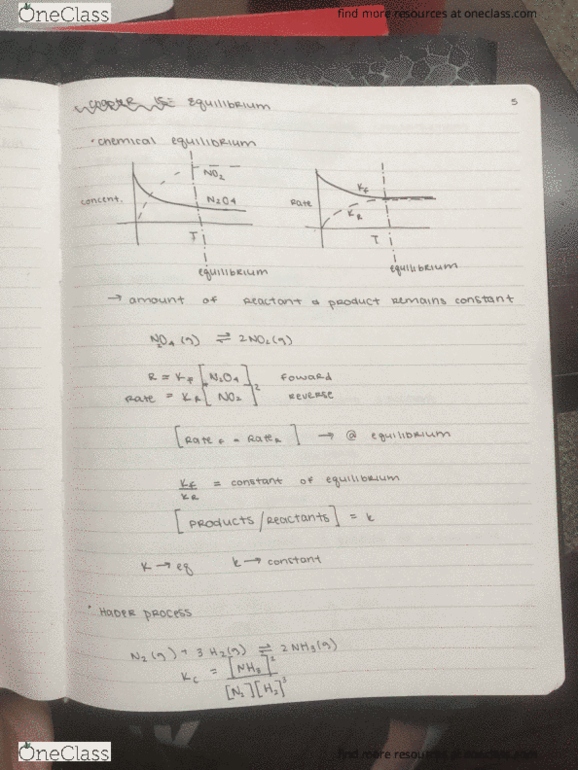 OneClass
find more resources at oneclass.com
equilibrium
5
• chemical equilibrium
NO2
N2O4
concent.
T
equilibrium
KF
KR
Rate
T
equilibrium
→ amount of reactant & product remains constant
N2O4 (g) ⇌ 2NO2 (g)
R = KF [N2O4] Foward
Rate = KR [NO2]² reverse
[RateF = RateR] → @ equilibrium
KF/KR = constant of equilibrium
[products/reactants] = k
K → eq k → constant
• Haber process
N2 (g) + 3 H2 (g) ⇌ 2 NH3 (g)
Kc = [NH3]² / [N2][H2]³
OneClass
find more resources at oneclass.com